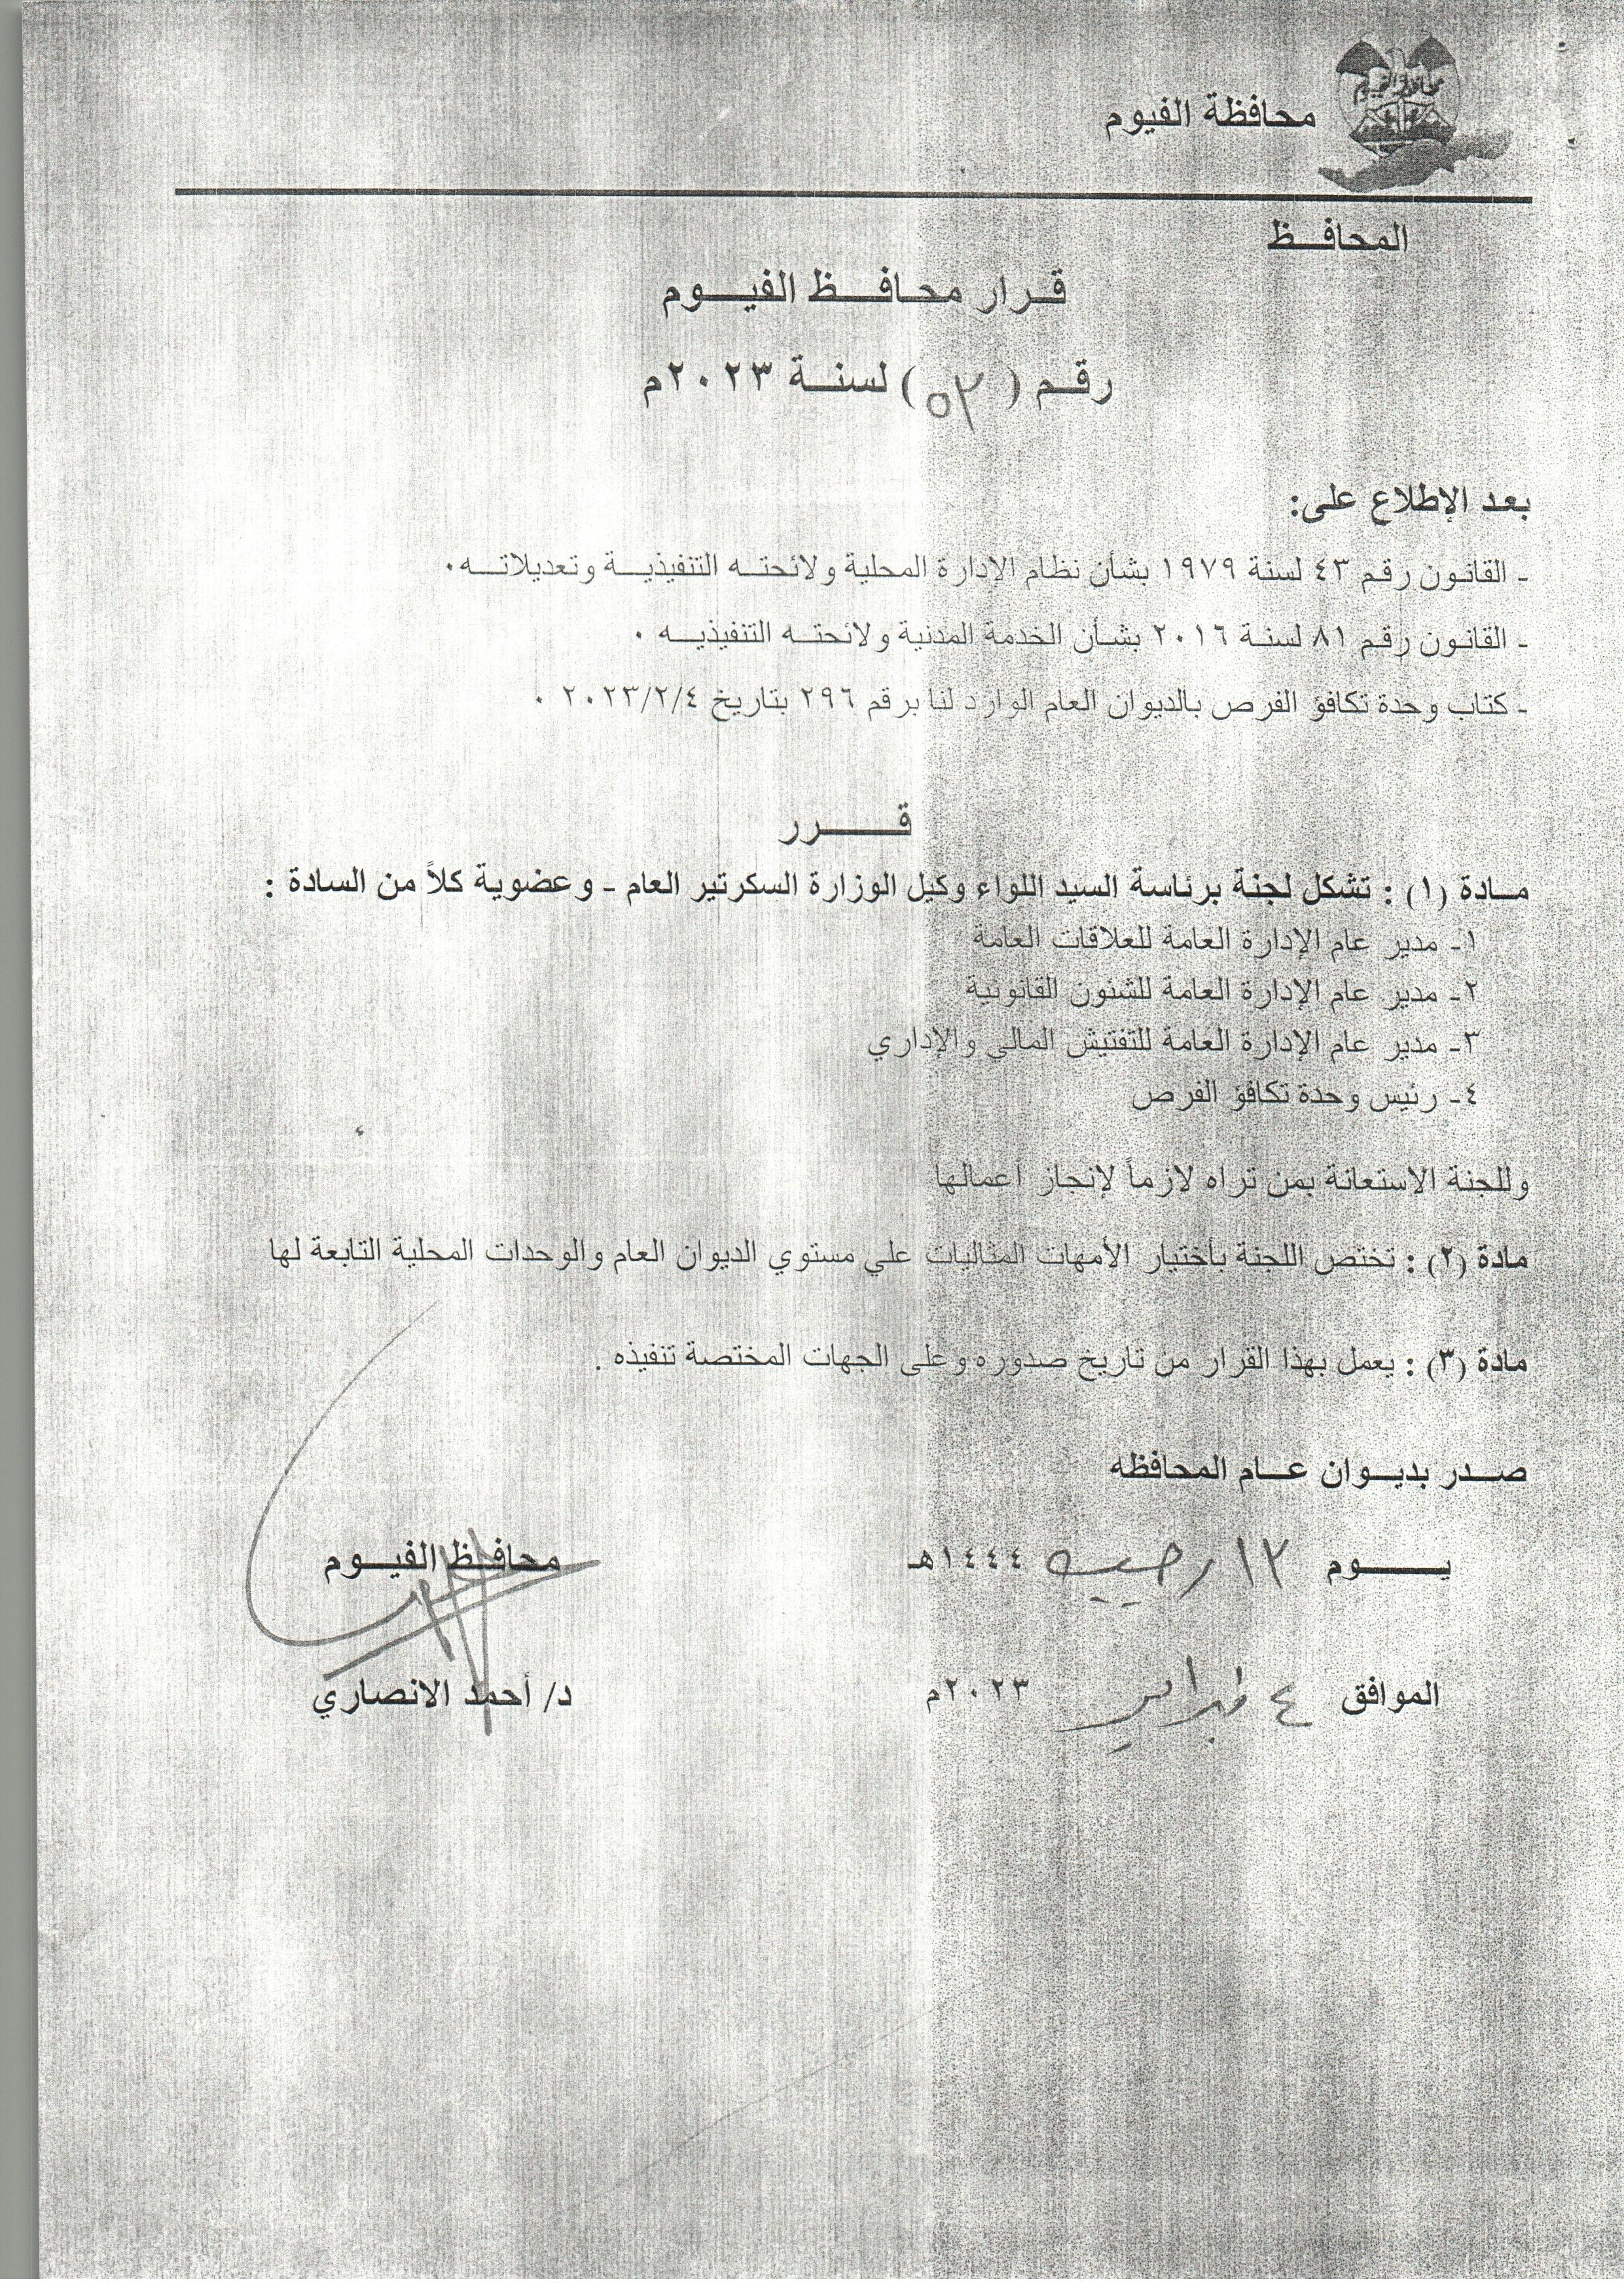 محافظة الفيوم
محافظة الفيوم
المحافــظ
قـرار محـافــظ الفيــوم
رقـم ( ٥٣ ) لسنــة ٢٠٢٣م
بعـد الإطلاع على:
- القانـون رقـم ٤٣ لسنة ١٩٧٩ بشأن نظام الإدارة المحلية ولائحتـه التنفيذيــة وتعديلاتــه.
- القانـون رقـم ٨١ لسنـة ٢٠١٦ بشـأن الخدمة المدنية ولائحتـه التنفيذيـه .
- كتاب وحدة تكافؤ الفرص بالديوان العام الوارد لنا برقم ٢٩٦ بتاريخ ٢٠٢٣/٢/٤ .
قــــرر
مــادة (١) : تشكل لجنة برئاسة السيد اللواء وكيل الوزارة السكرتير العام - وعضوية كلاً من السادة :
١- مدير عام الإدارة العامة للعلاقات العامة
٢- مدير عام الإدارة العامة للشئون القانونية
٣- مدير عام الإدارة العامة للتفتيش المالي والإداري
٤- رئيس وحدة تكافؤ الفرص
وللجنة الاستعانة بمن تراه لازماً لإنجاز أعمالها
مادة (٢) : تختص اللجنة بأختيار الأمهات المثاليات علي مستوي الديوان العام والوحدات المحلية التابعة لها
مادة (٣) : يعمل بهذا القرار من تاريخ صدوره وعلى الجهات المختصة تنفيذه .
صــدر بديــوان عــام المحافظه
يـــــوم ١٣ رجب ١٤٤٤هـ
محافـظ الفيــوم
الموافق ٤ فبراير ٢٠٢٣م
د/ أحمد الانصاري